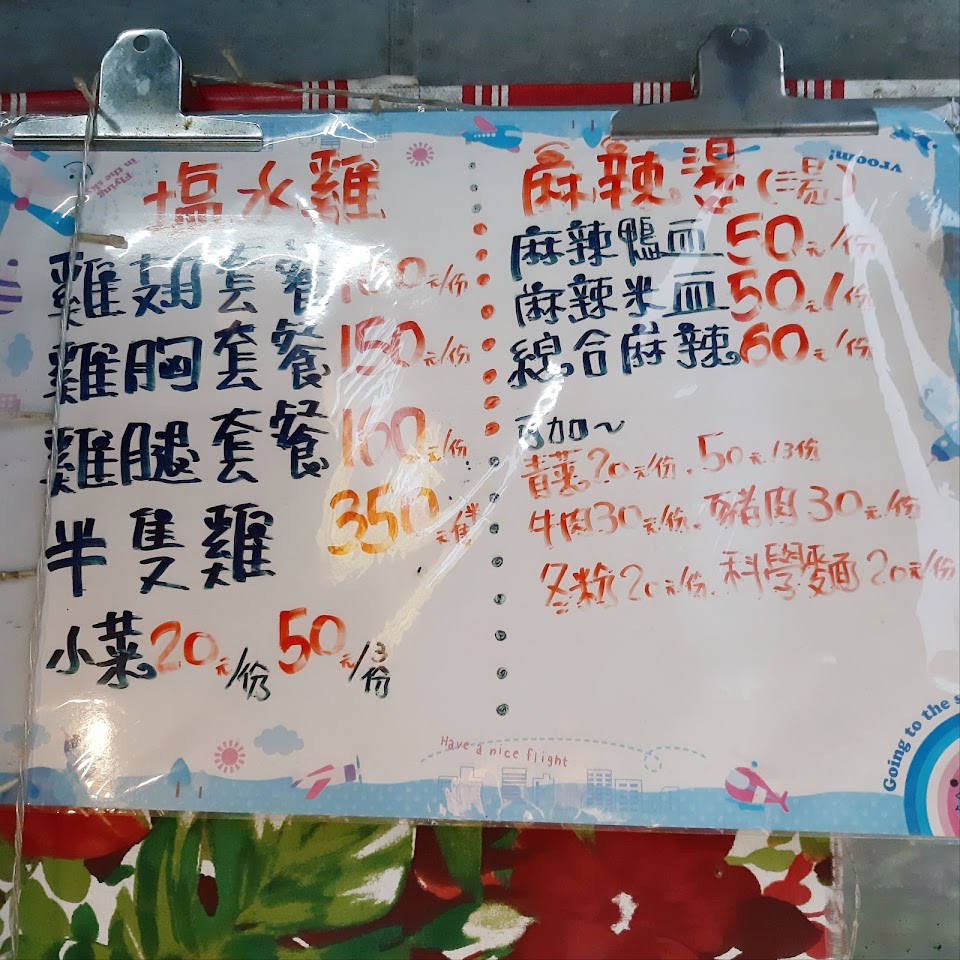 塩水雞
雞翅套餐 元/份
雞胸套餐150元/份
雞腿套餐160元/份
半隻雞350元/半隻
小菜20元/份 50元/3份
麻辣燙(湯)
麻辣鴨血50元/份
麻辣米血50元/份
綜合麻辣60元/份
可加~
青菜20元/份、50元/3份
牛肉30元/份、豬肉30元/份
冬粉20元/份、科學麵20元/份
vroom!
Have a nice flight
Going to the